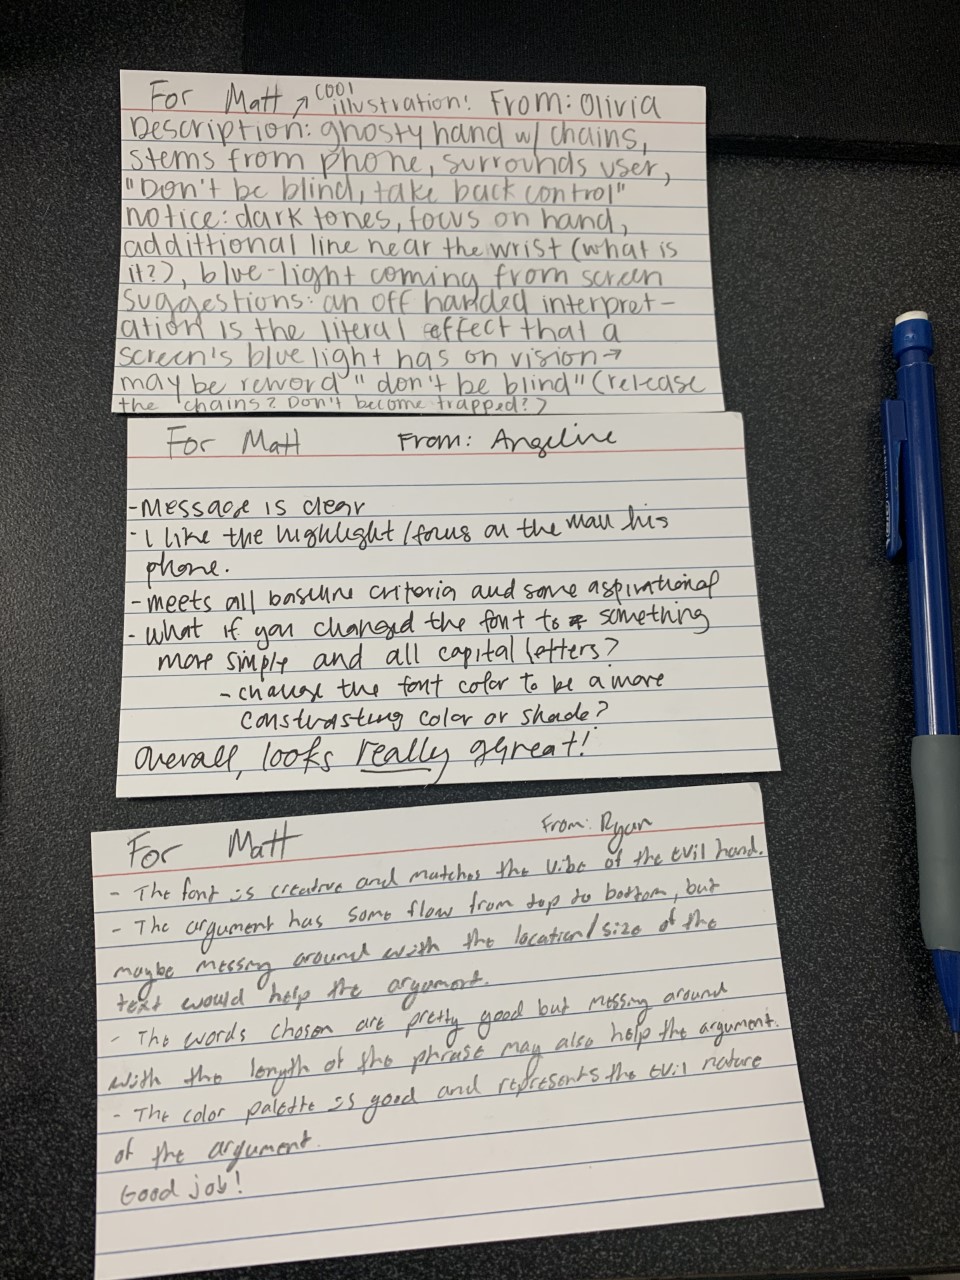 For Matt ↗ cool illustration! From: Olivia
Description: ghosty hand w/ chains,
stems from phone, surrounds user,
"Don't be blind, take back control"
notice: dark tones, focus on hand,
addittional line near the wrist (what is
it?), blue-light coming from screen
suggestions: an off handed interpret-
ation is the literal effect that a
screen's blue light has on vision →
maybe reword "don't be blind" (release
the chains? Don't become trapped?)
For Matt From: Angeline
- Message is clear
- I like the highlight/focus on the man his
phone.
- meets all baseline criteria and some aspirational
- What if you changed the font to something
more simple and all capital letters?
- change the font color to be a more
constrasting color or shade?
Overall, looks really great!
For Matt From: Ryan
- The font is creative and matches the vibe of the evil hand.
- The argument has some flow from top to bottom, but
maybe messing around with the location/size of the
text would help the argument.
- The words chosen are pretty good but messing around
with the length of the phrase may also help the argument.
- The color palette is good and represents the evil nature
of the argument.
Good job!